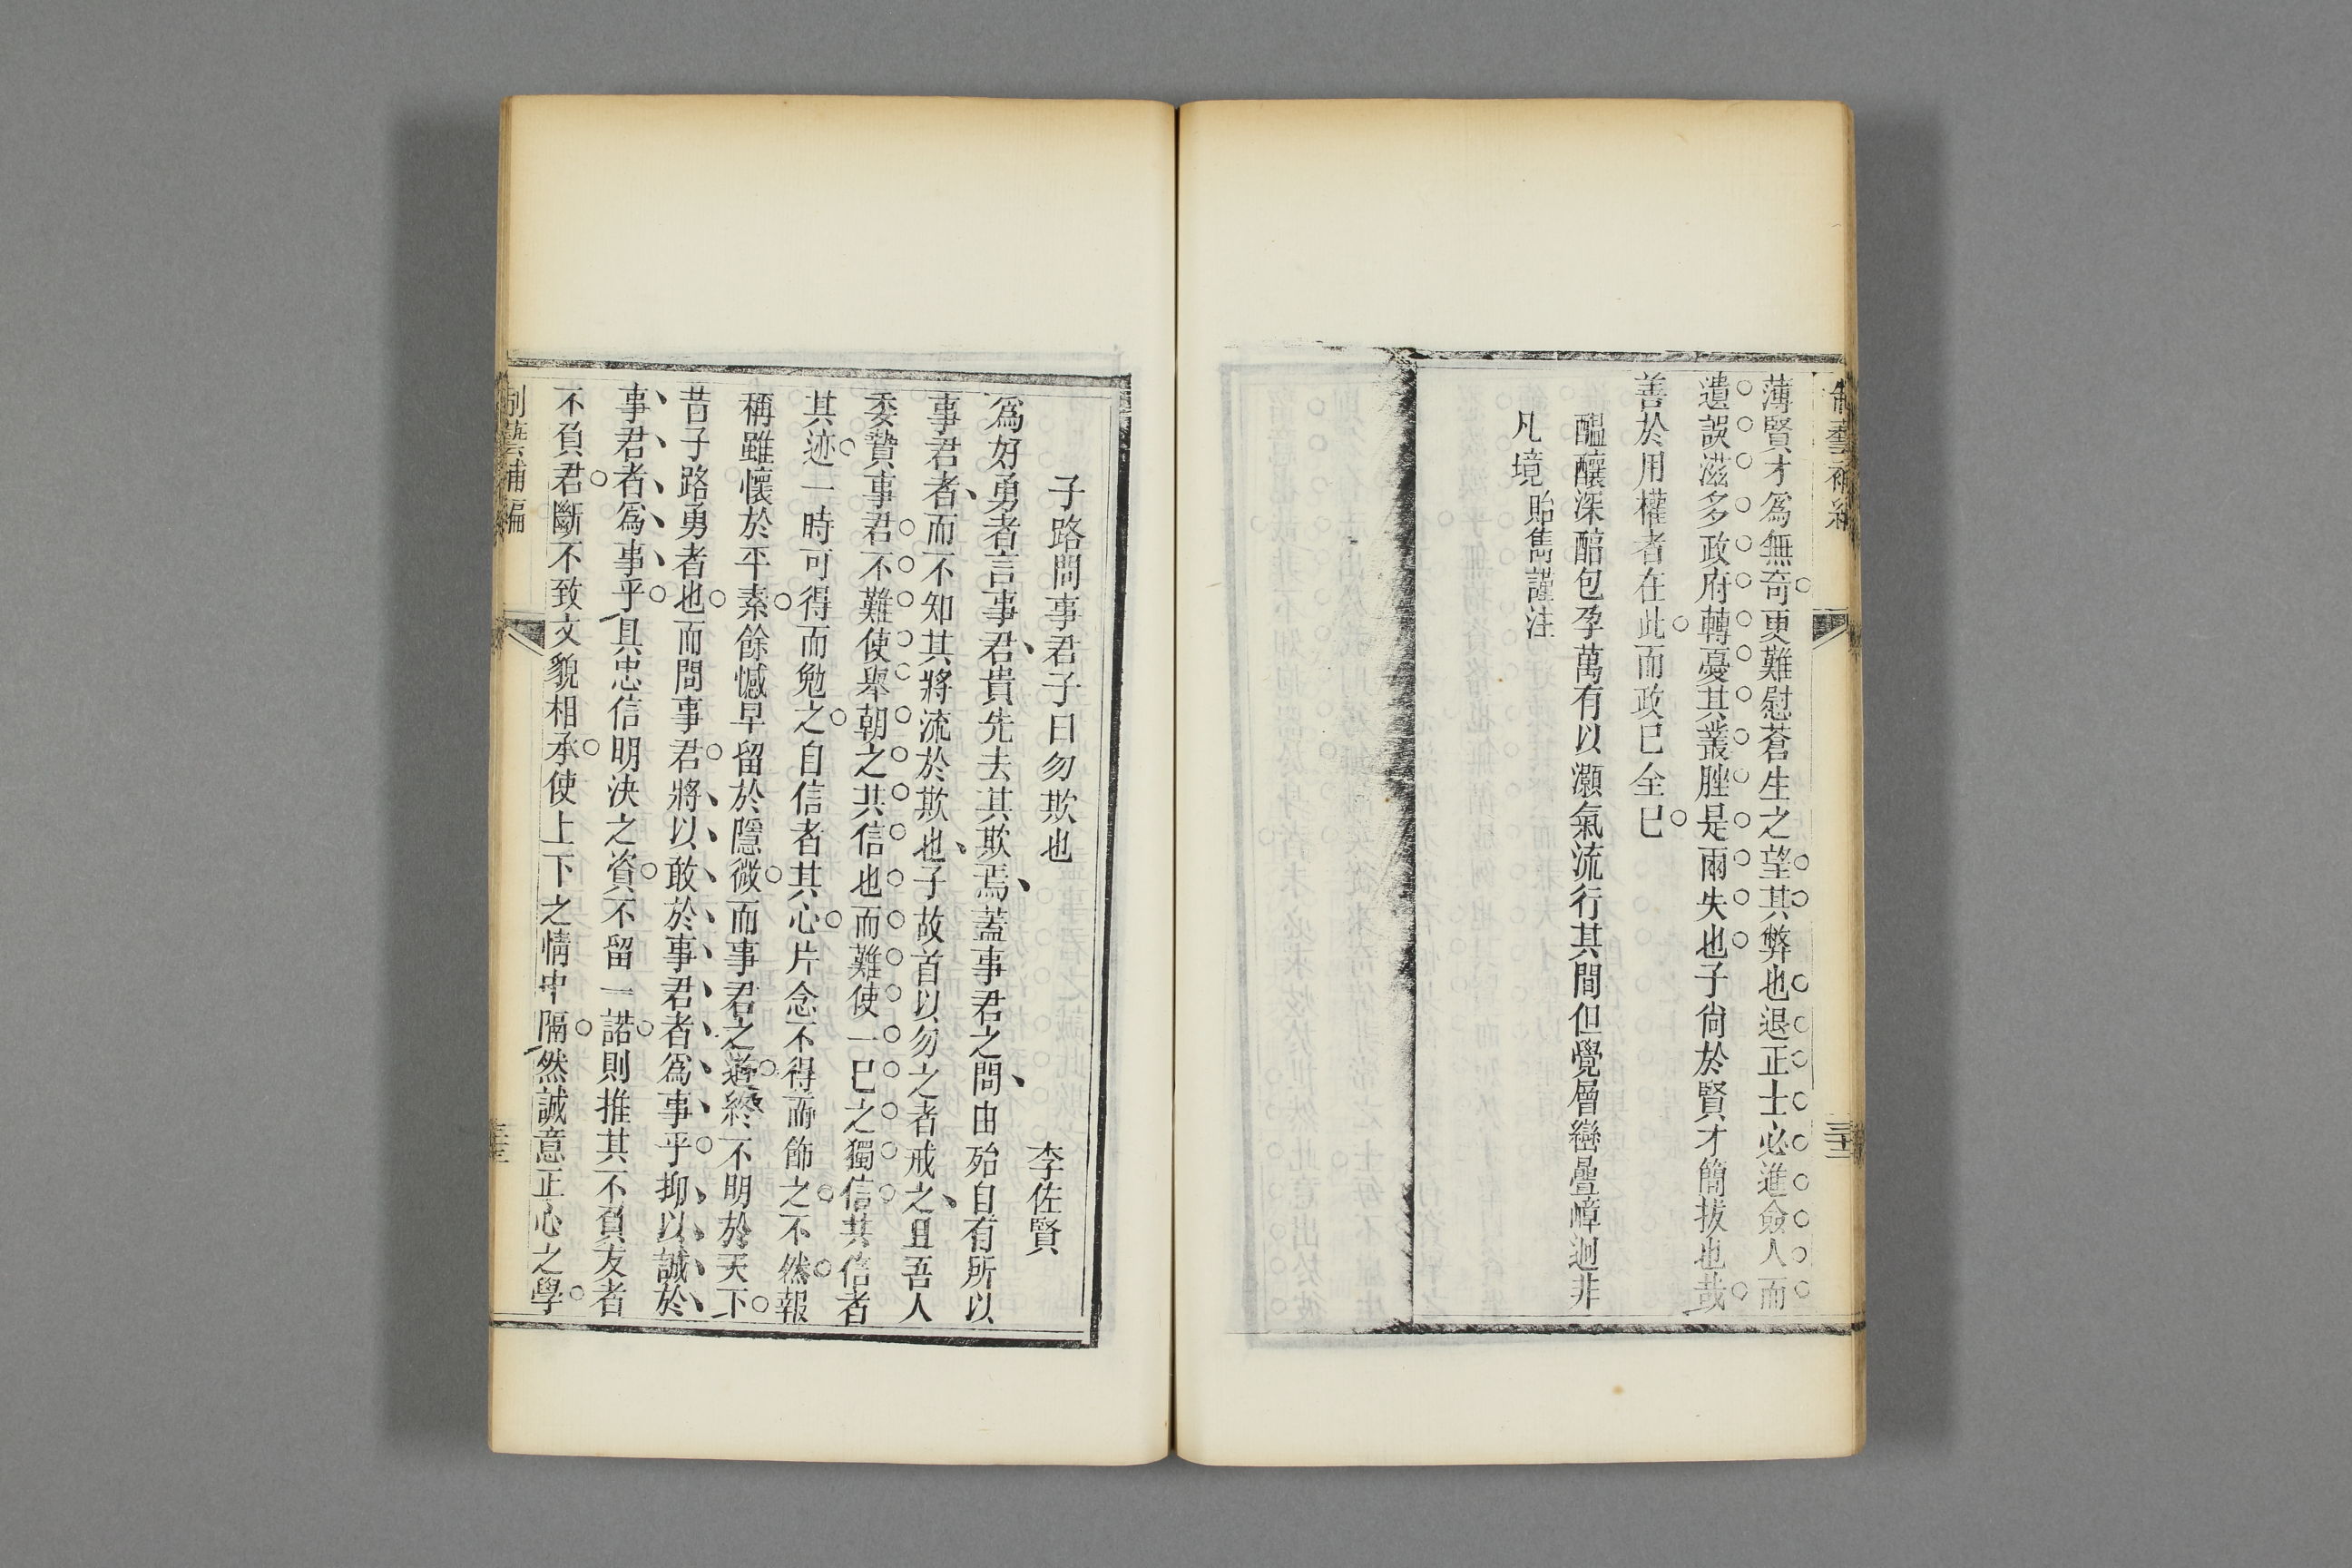 薄賢才爲無奇更難慰蒼生之望其弊也退正士必進僉人而
遺誤滋多政府轉憂其叢脞是兩失也子尙於賢才簡拔也哉
善於用權者在此而政已全已
醞釀深醇包孕萬有以灝氣流行其間但覺層巒疊嶂迥非
凡境
貽雋謹注
子路問事君子曰勿欺也
李佐賢
爲好勇者言事君貴先去其欺焉蓋事君之問由殆自有所以
事君者而不知其將流於欺也子故首以勿之者戒之且吾人
委贄事君不難使舉朝之共信也而難使一已之獨信共信者
其迹一時可得而勉之自信者其心片念不得而飾之不然報
稱雖懷於平素餘憾早留於隱微而事君之道終不明於天下
昔子路勇者也而問事君將以敢於事君者爲事乎抑以誠於
事君者爲事乎具忠信明決之資不留一諾則推其不負友者
不負君斷不致文貌相承使上下之情中隔然誠意正心之學
制藝補編